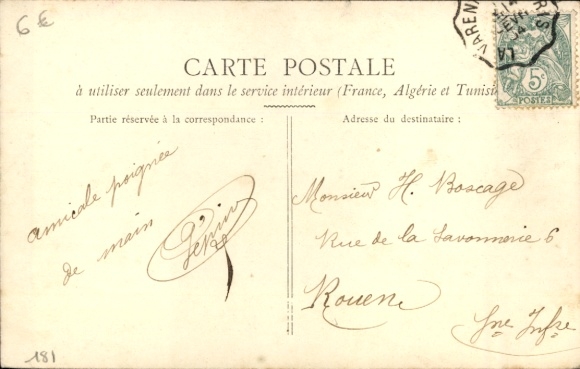 6 €
CARTE POSTALE
à utiliser seulement dans le service intérieur (France, Algérie et Tunisie
Partie réservée à la correspondance :
Adresse du destinataire :
5c
POSTES
VARENN
LA
04
amicale poignée
de main
Monsieur H. Boscage
Rue de la Savonnerie 6
Rouen
Sne Infre
181